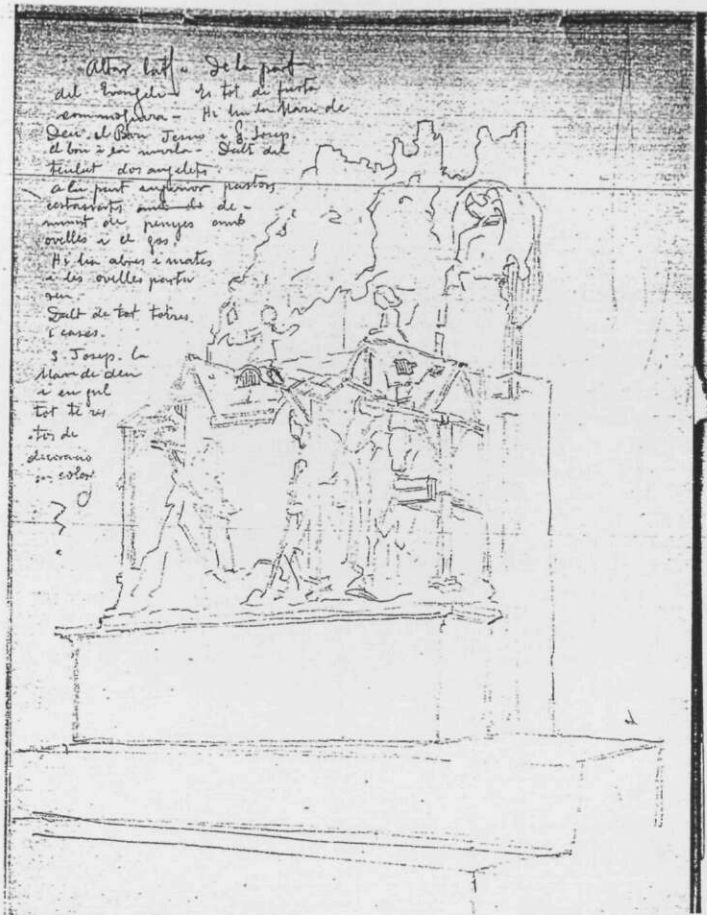 Altar lat[l] - De la part
del Evangeli - Es tot de fusta
- Hi ha la Mare de
Deu, el Bon Jesus i S. Josep.
el bou i la mula - Dalt del
teulat dos angelets
a la part superior pastors
amb de-
munt de penyes amb
ovelles i el gos,
Hi ha abres i mates
i les ovelles pastu
ren
Dalt de tot torres
i cases.
S. Josep. la
Mare de deu
i en
tot te res
tos de
decoracio
color
?